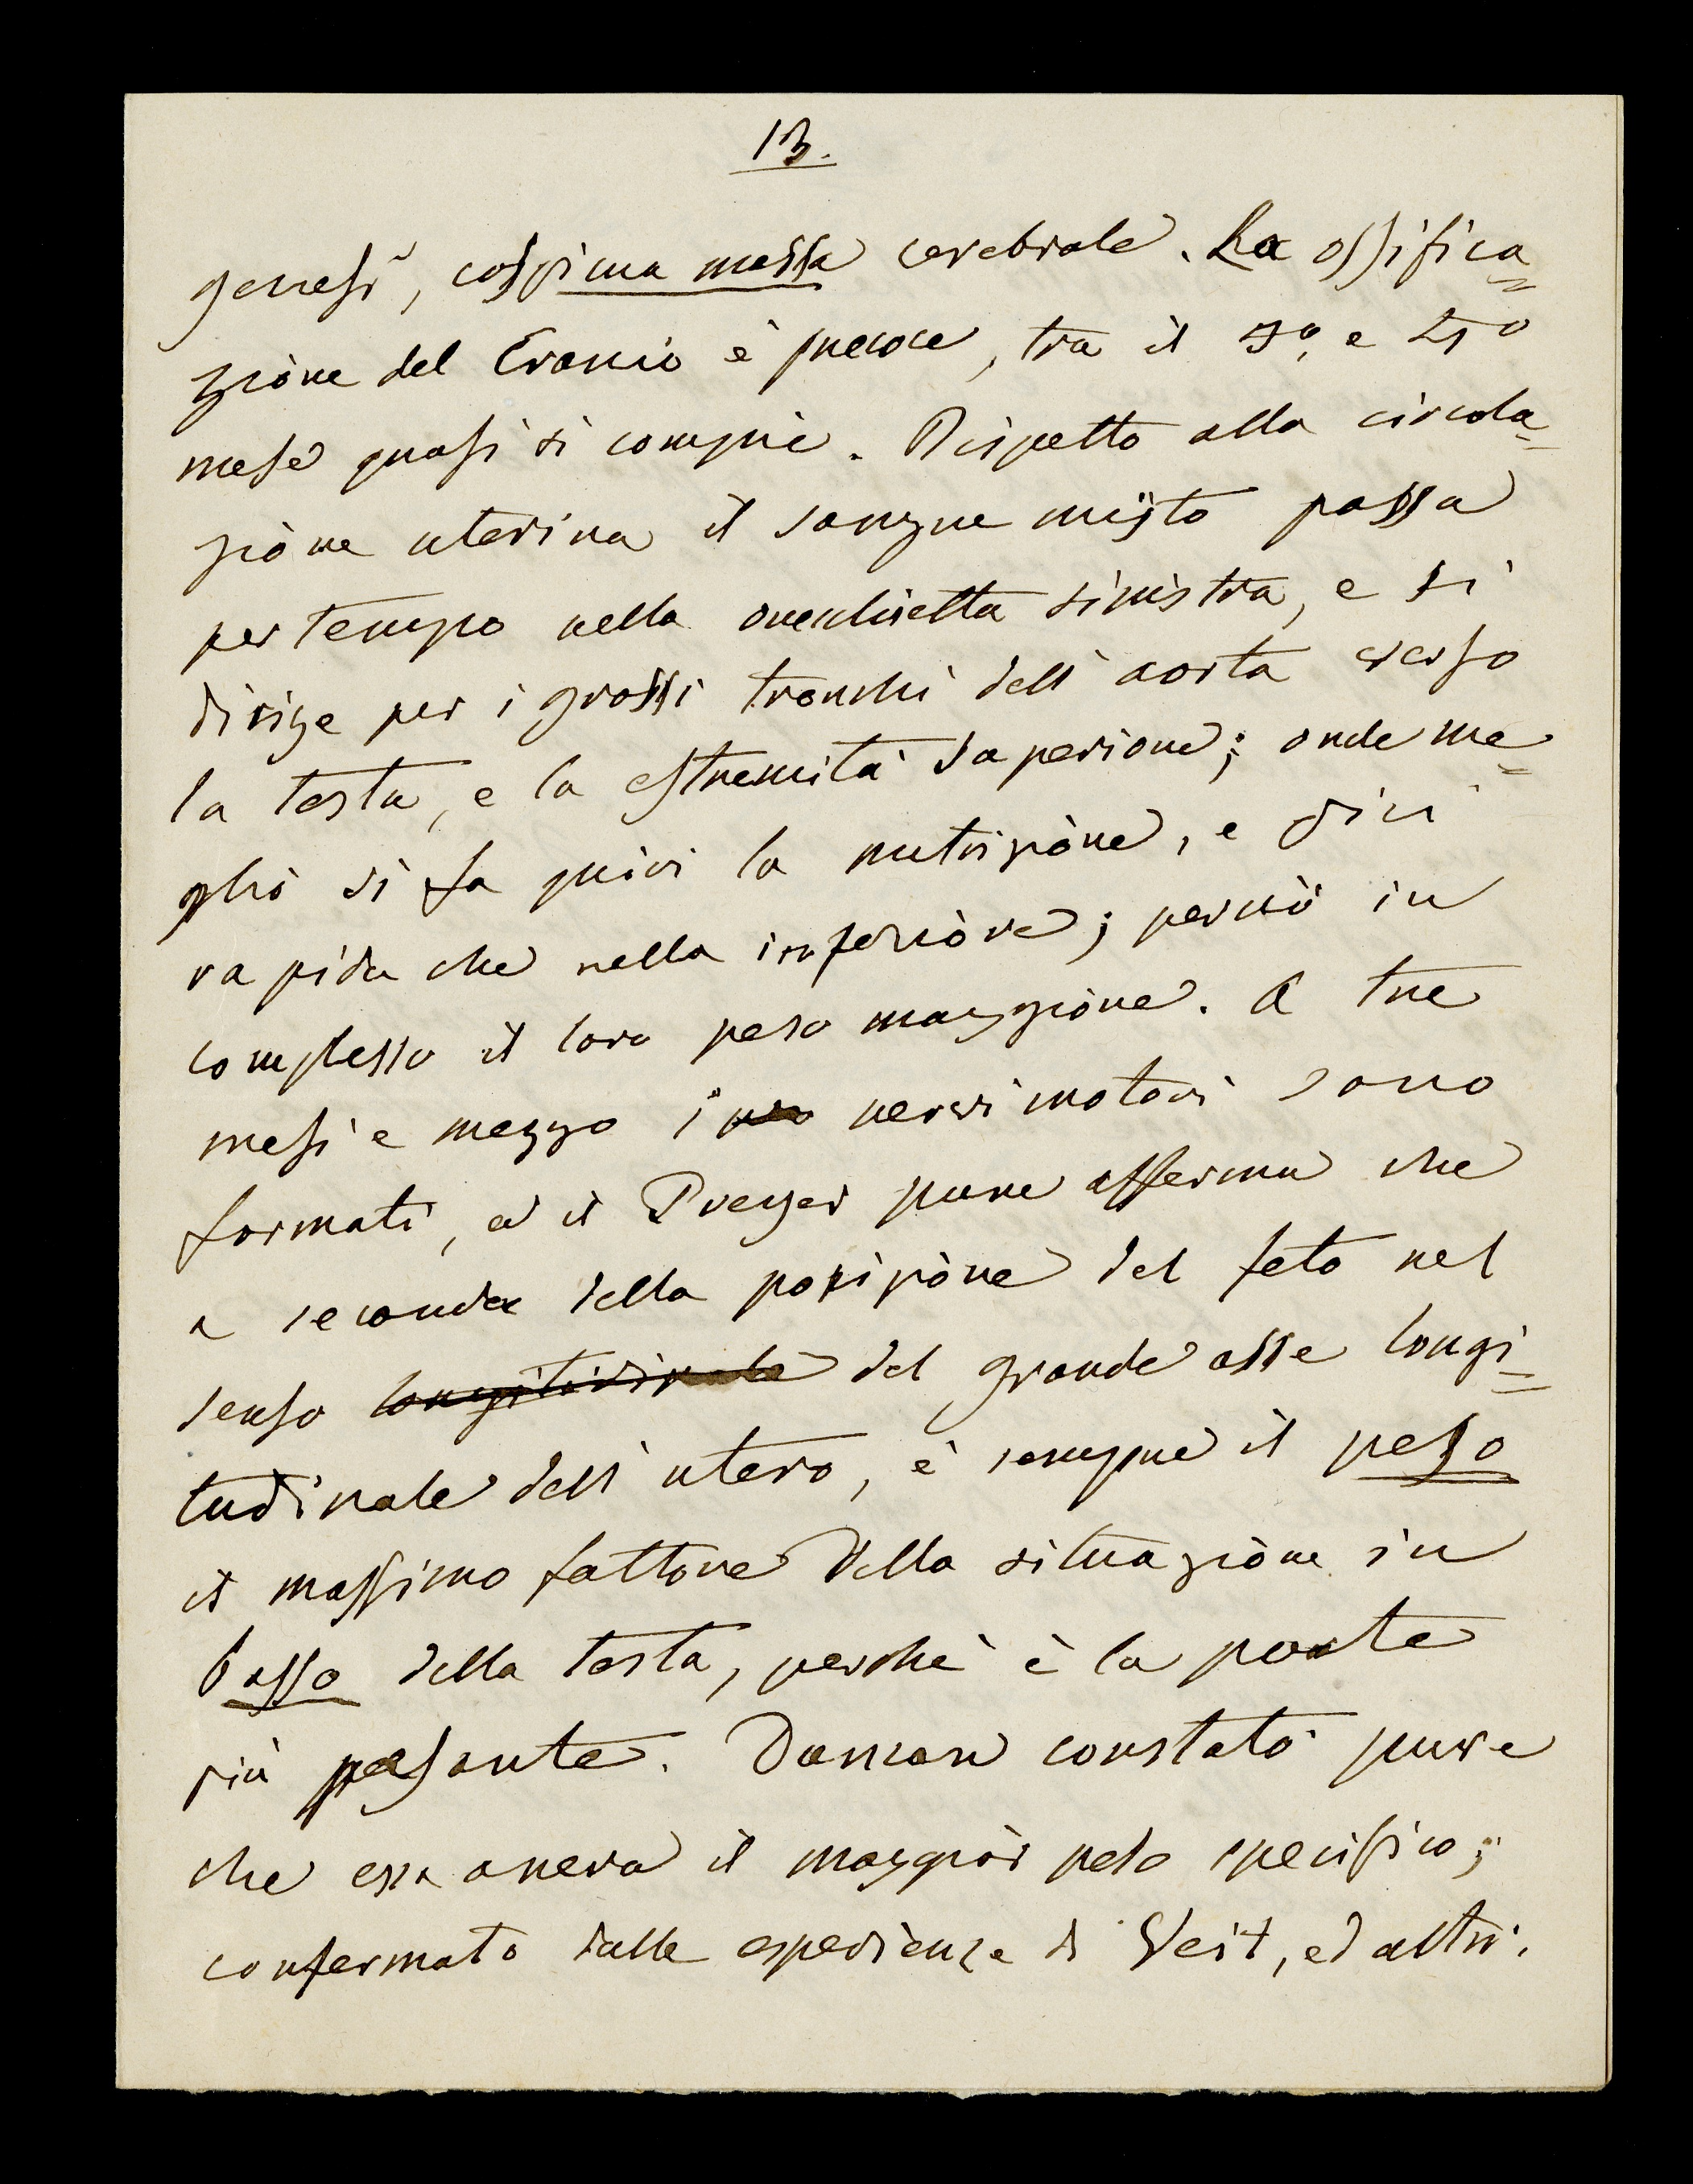 13.
genesi, cospicua massa cerebrale. La ossifica=
zione del Cranio è precoce, tra il 3º, e 4º
mese quasi si compie. Rispetto alla circola=
zione uterina il sangue misto passa
per tempo nella orecchietta sinistra, e si
dirige per i grossi tronchi dell'aorta verso
la testa, e la estremità superiore; onde me=
glio si fa quivi la nutrizione, e più
rapida che nella inferiore; perciò in
complesso il loro peso maggiore. A tre
mesi e mezzo i nervi motori sono
formati, ed il Preyer pure afferma che
a seconda della posizione del feto nel
senso longitidinale del grande asse longi=
tudinale dell'utero, è sempre il peso
il massimo fattore della situazione in
basso della testa, perchè è la parte
più pesante. Duncan constatò pure
che essa aveva il maggior peso specifico;
confermato dalle esperienze di Veit, ed altri.